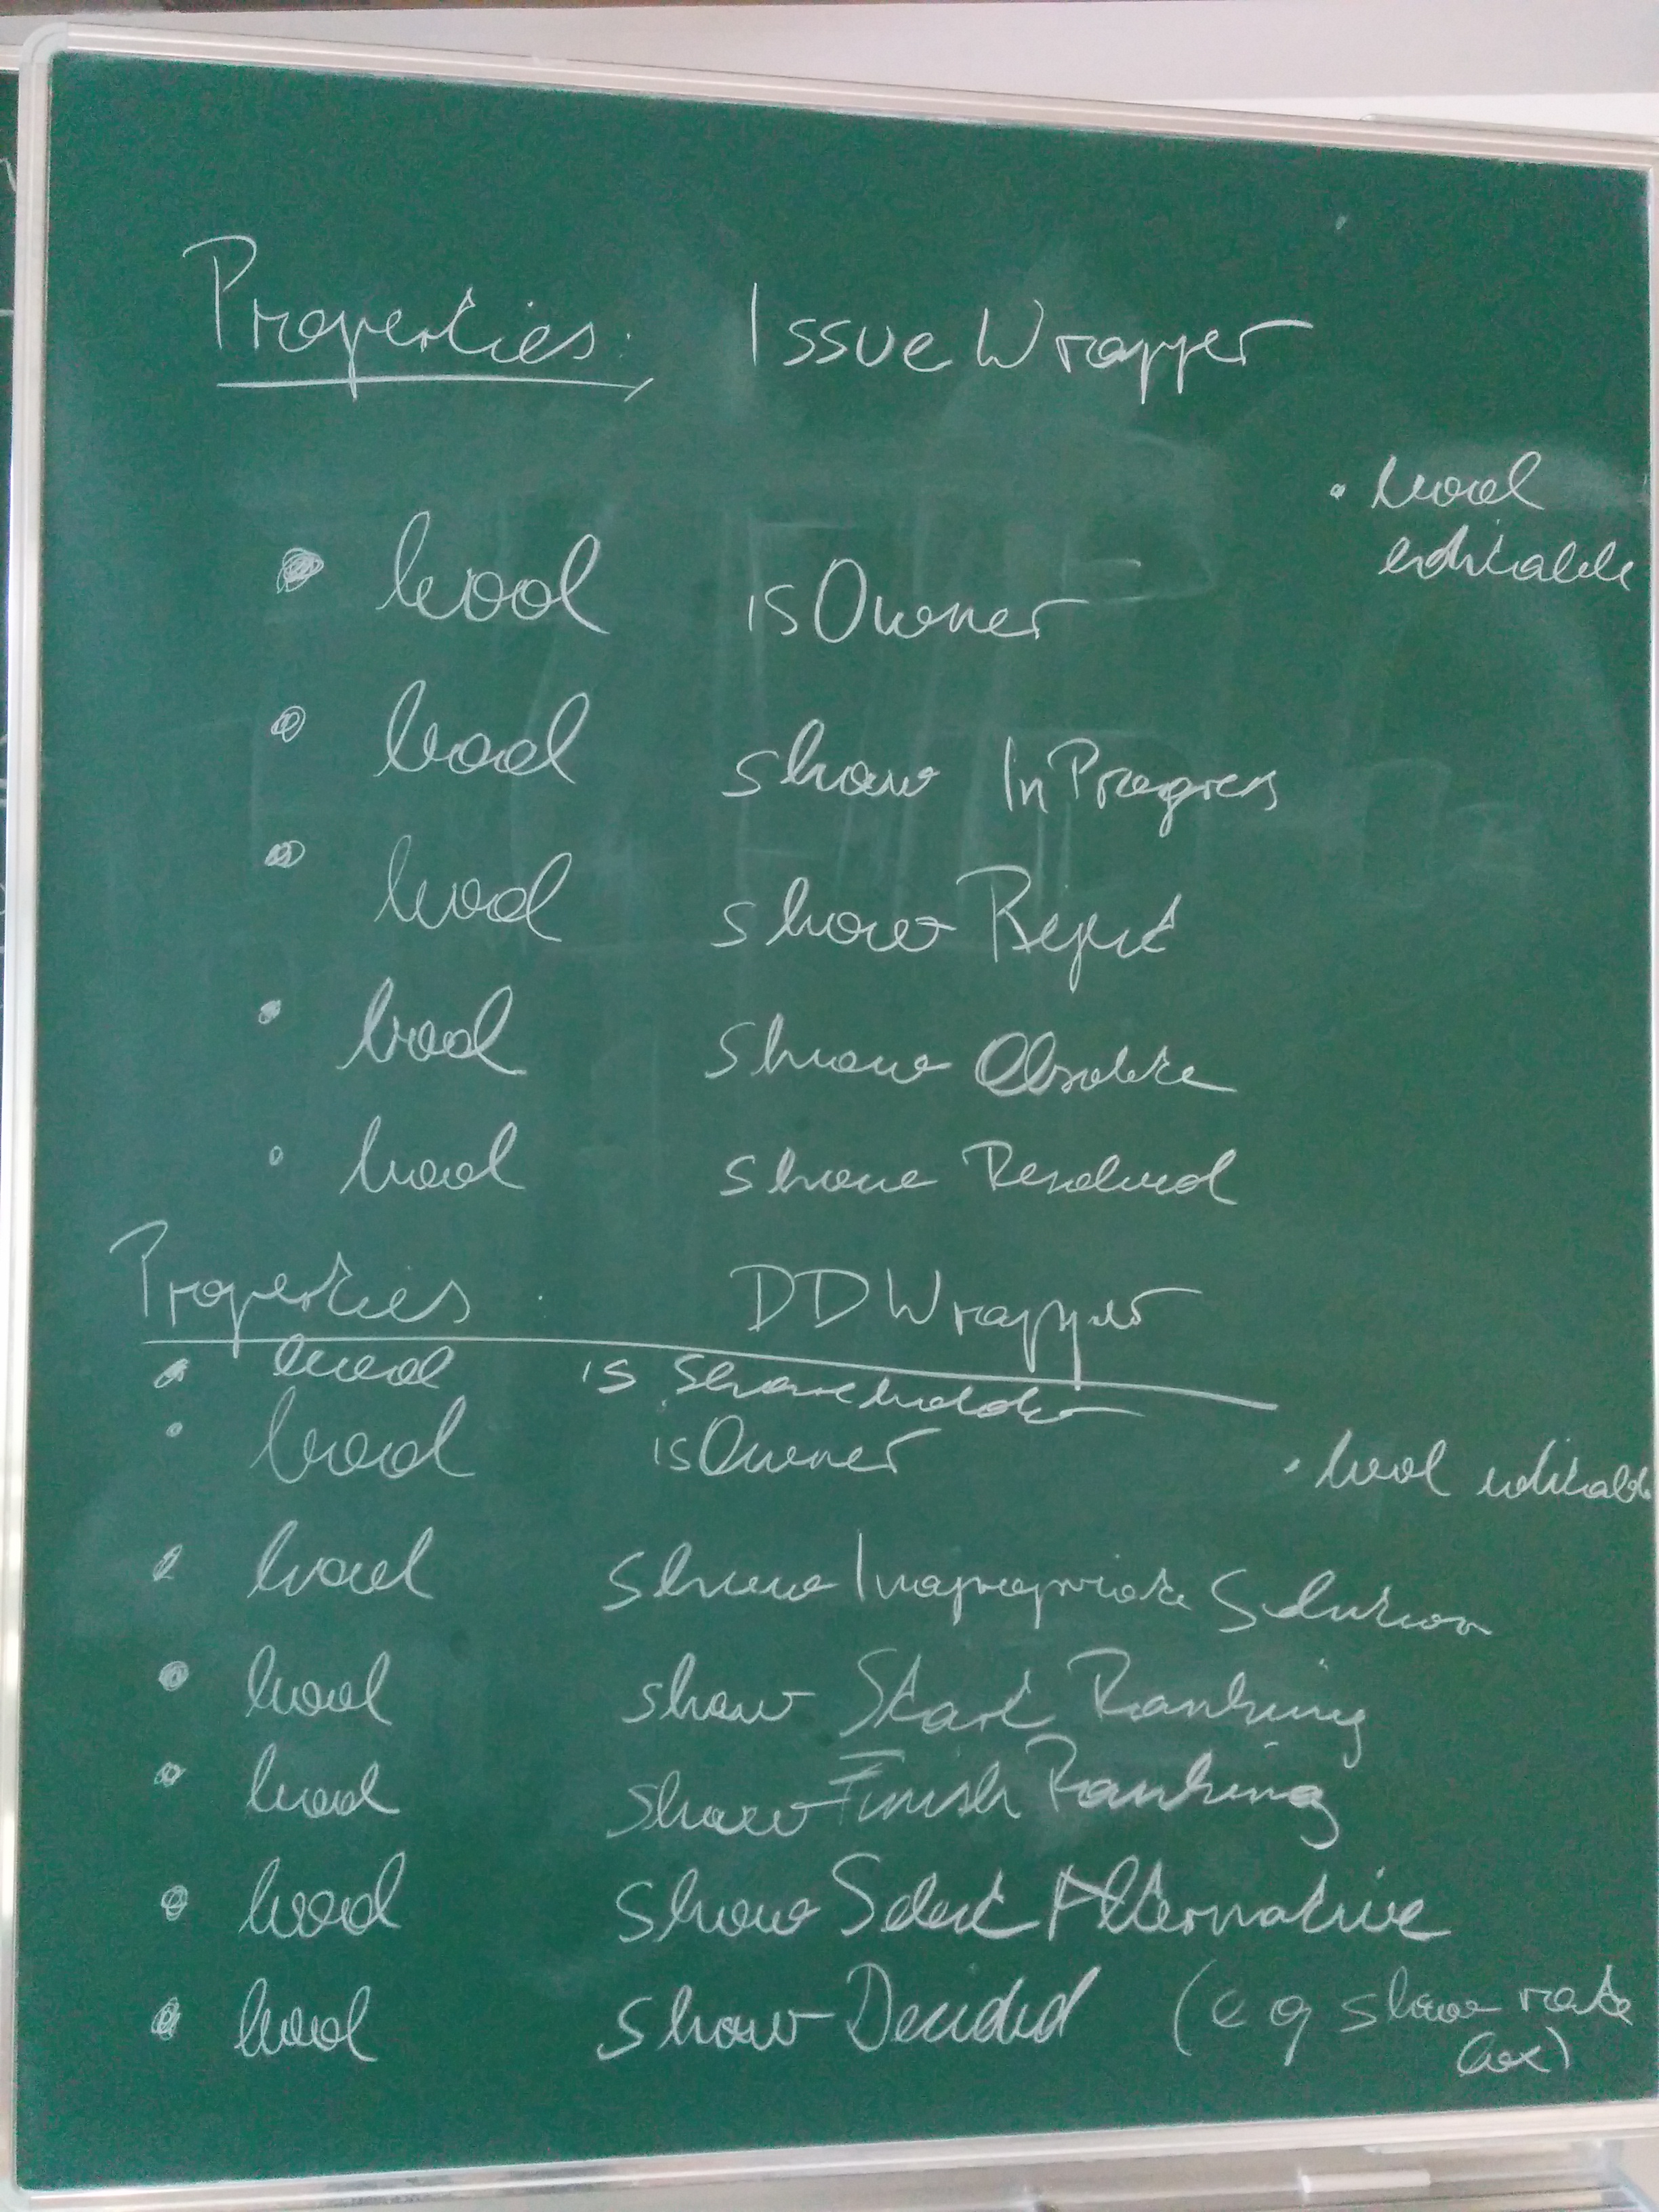 Properties: IssueWrapper
• bool editable
• bool isOwner
• bool show InProgress
• bool show Reject
• bool show Obsolete
• bool show Resolved
Properties : DDWrapper
• bool is Shareholder
• bool isOwner
• bool editable
• bool show Inapropriate Solution
• bool show Start Ranking
• bool show Finish Ranking
• bool show Select Alternative
• bool show Decided (e g show rate
box)